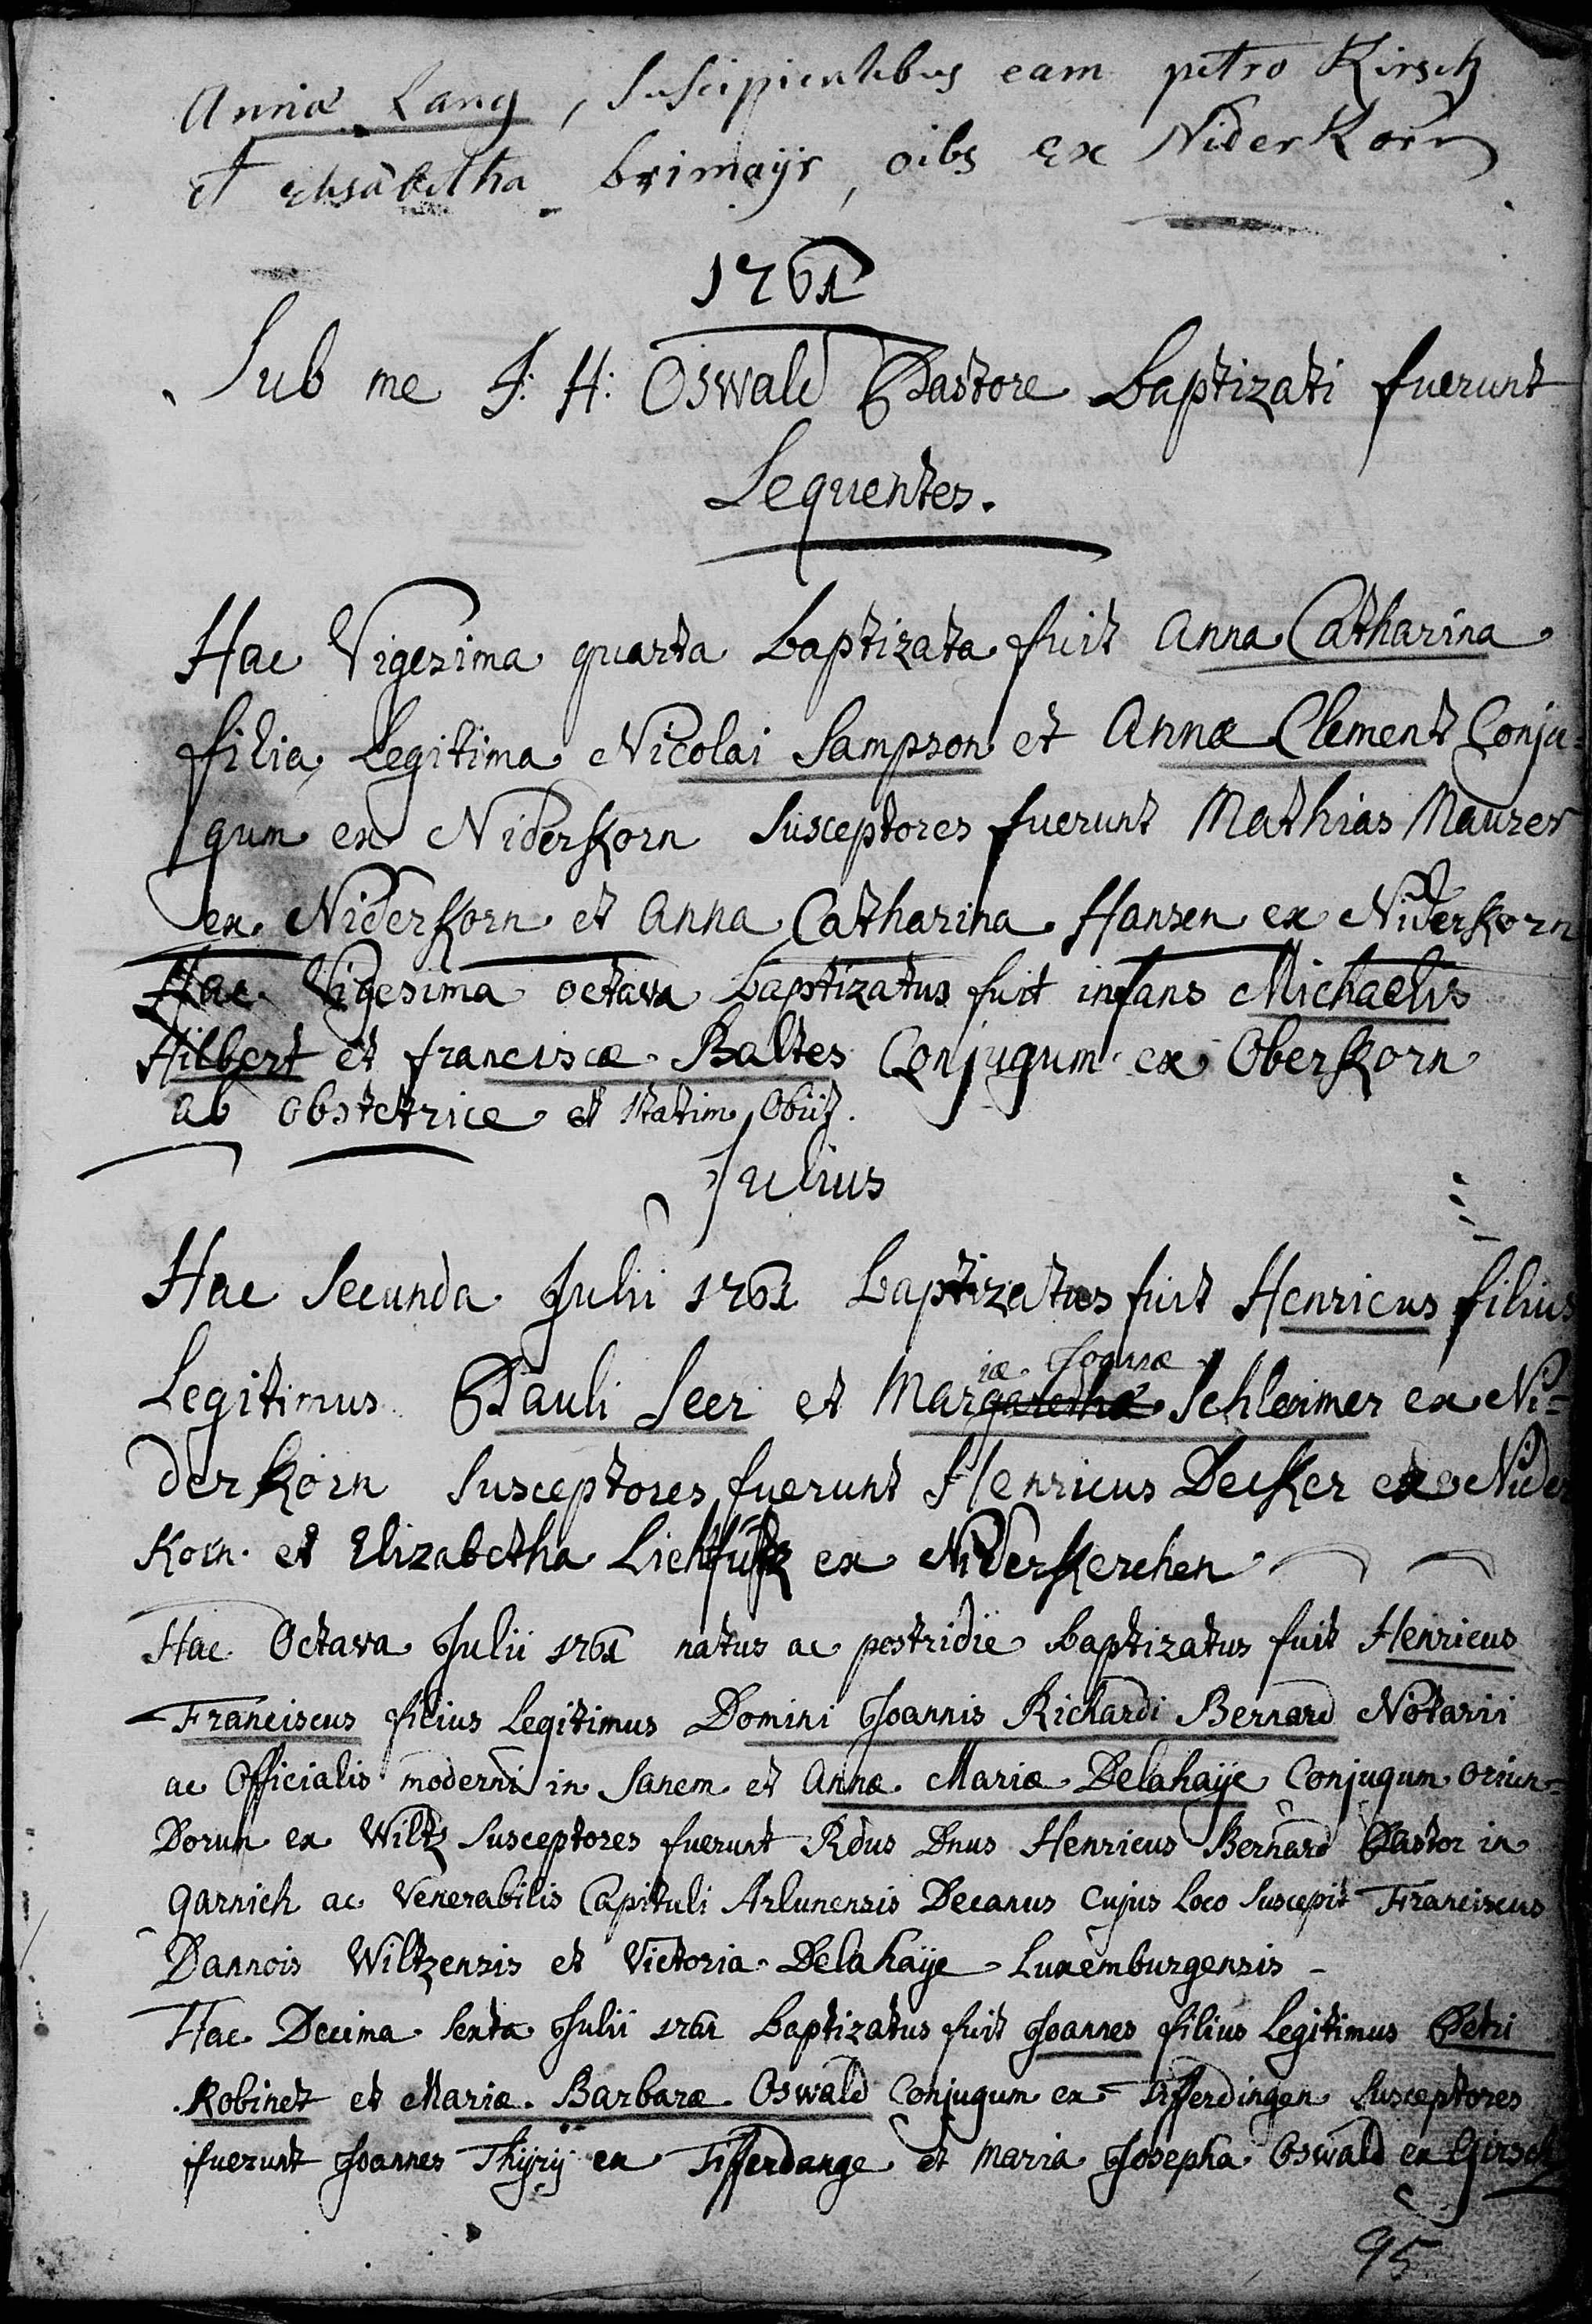 Annæ Lang, Suscipientibus eam petro Kirsch
et elisabetha brimeÿr, oibs ex NiderKorn
1761
Sub me J: H: Oswald Pastore baptizati fuerunt
Sequentes.
Hac Vigesima quarta baptizata fuit Anna Catharina
filia Legitima Nicolai Sampson et Annæ Clement Conju=
gum ex Niderkorn Susceptores fuerunt Mathias Maurer
ex Niderkorn et Anna Catharina Hansen ex Niderkorn
Hac Vigesima octava baptizatus fuit infans Michaelis
Hilbert et franciscæ Baltes Conjugum ex Oberkorn
ab obstetrice et statim obiit.
Julius
Hac Secunda Julii 1761 baptizatus fuit Henricus filius
iæ Joannæ
Legitimus Pauli Seer et Margarethæ Schleimer ex Ni=
derkorn Susceptores fuerunt Henricus Decker ex Nider
Korn et Elizabetha ex Niderkerchen
Hac Octava Julii 1761 natus ac postridie baptizatus fuit Henricus
Franciscus filius Legitimus Domini Joannis Richardi Bernard Notarii
ac Officialis moderni in Sanem et Annæ Mariæ Delahaÿe Conjugum oriun=
Dorum ex Wiltz Susceptores fuerunt Rdus Dnus Henricus Bernard Pastor in
garnich ac Venerabilis Capituli Arlunensis Decanus Cujus Loco Suscepit Franciscus
Dannois Wiltzensis et Victoria Delahaÿe Luxemburgensis
Hac Decima Sexta Julii 1761 baptizatus fuit Joannes filius Legitimus Petri
Robinet et Mariæ Barbaræ Oswald Conjugum ex Differdingen Susceptores
fuerunt Joannes Thÿrÿ ex Differdange et Maria Josepha Oswald ex Girsch
95